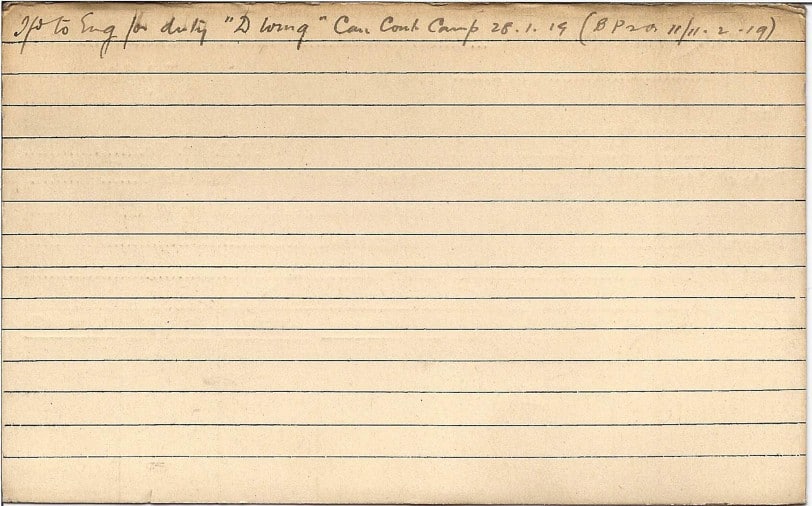 Tfd to Eng for duty "D Wing" Can Conc Camp 28.1.19 (B P2O 11/11-2-19)